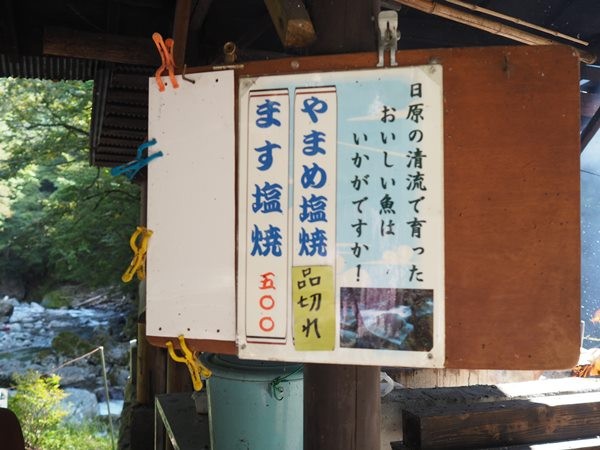 日原の清流で育った
おいしい魚は
いかがですか!
やまめ塩焼
品切れ
ます塩焼
五〇〇